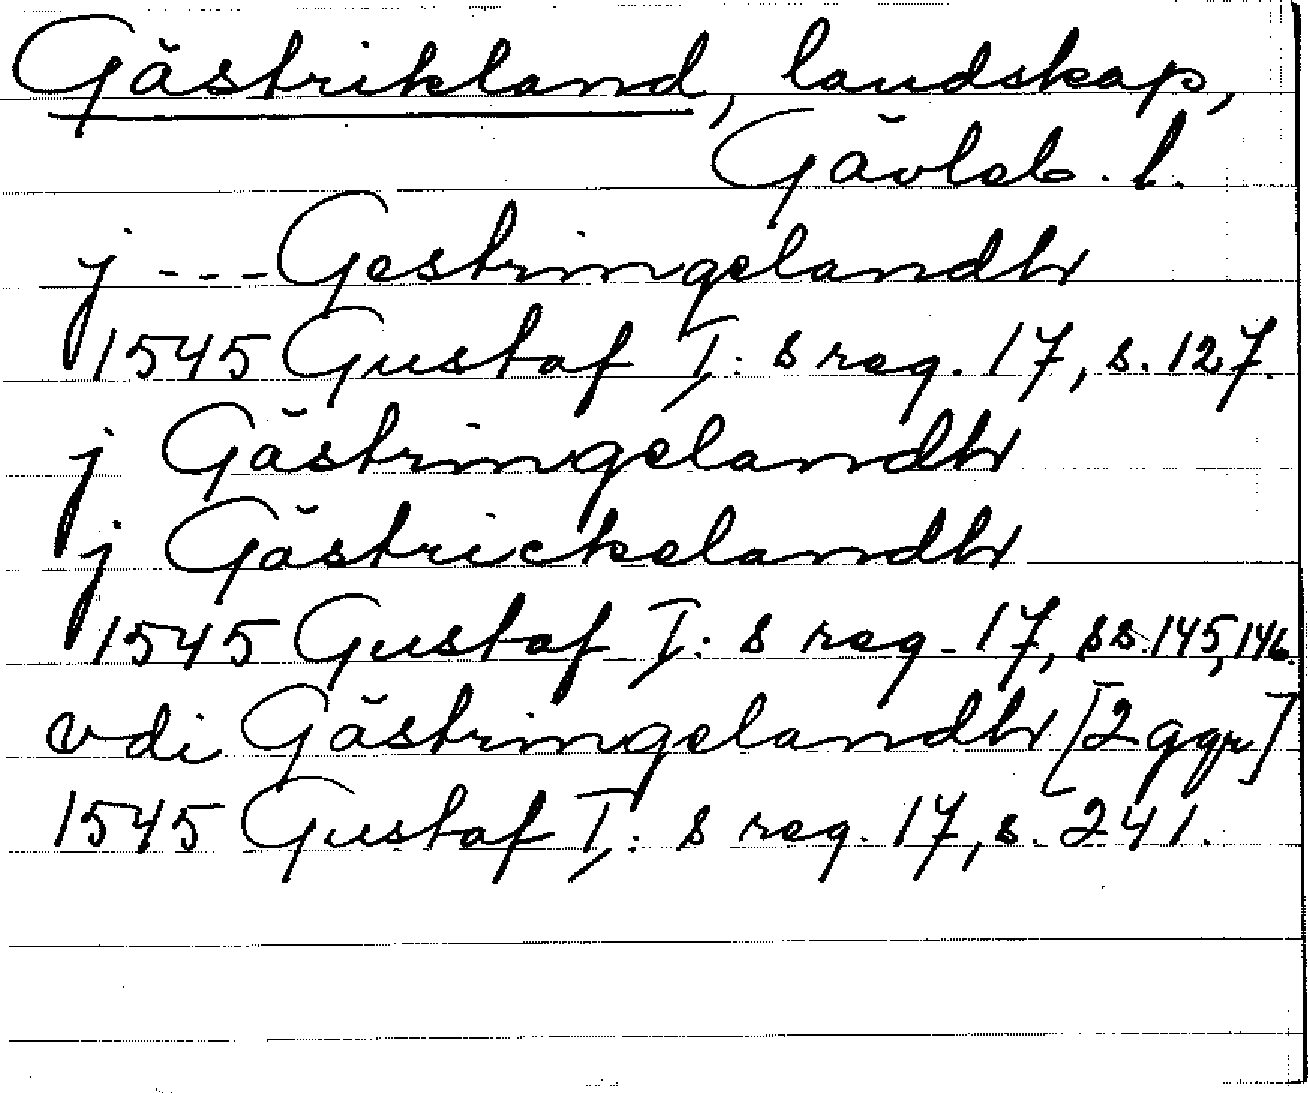 Gästrikland, landskap,
Gävleb. l.
j --- Gestringelandh
1545 Gustaf I: s reg. 17, s. 127.
j Gästringelandh
j Gästrickelandh
1545 Gustaf I: s reg. 17, ss. 145, 146.
vdi Gästringelandh [2 ggr]
1545 Gustaf I: s reg. 17, s. 241.